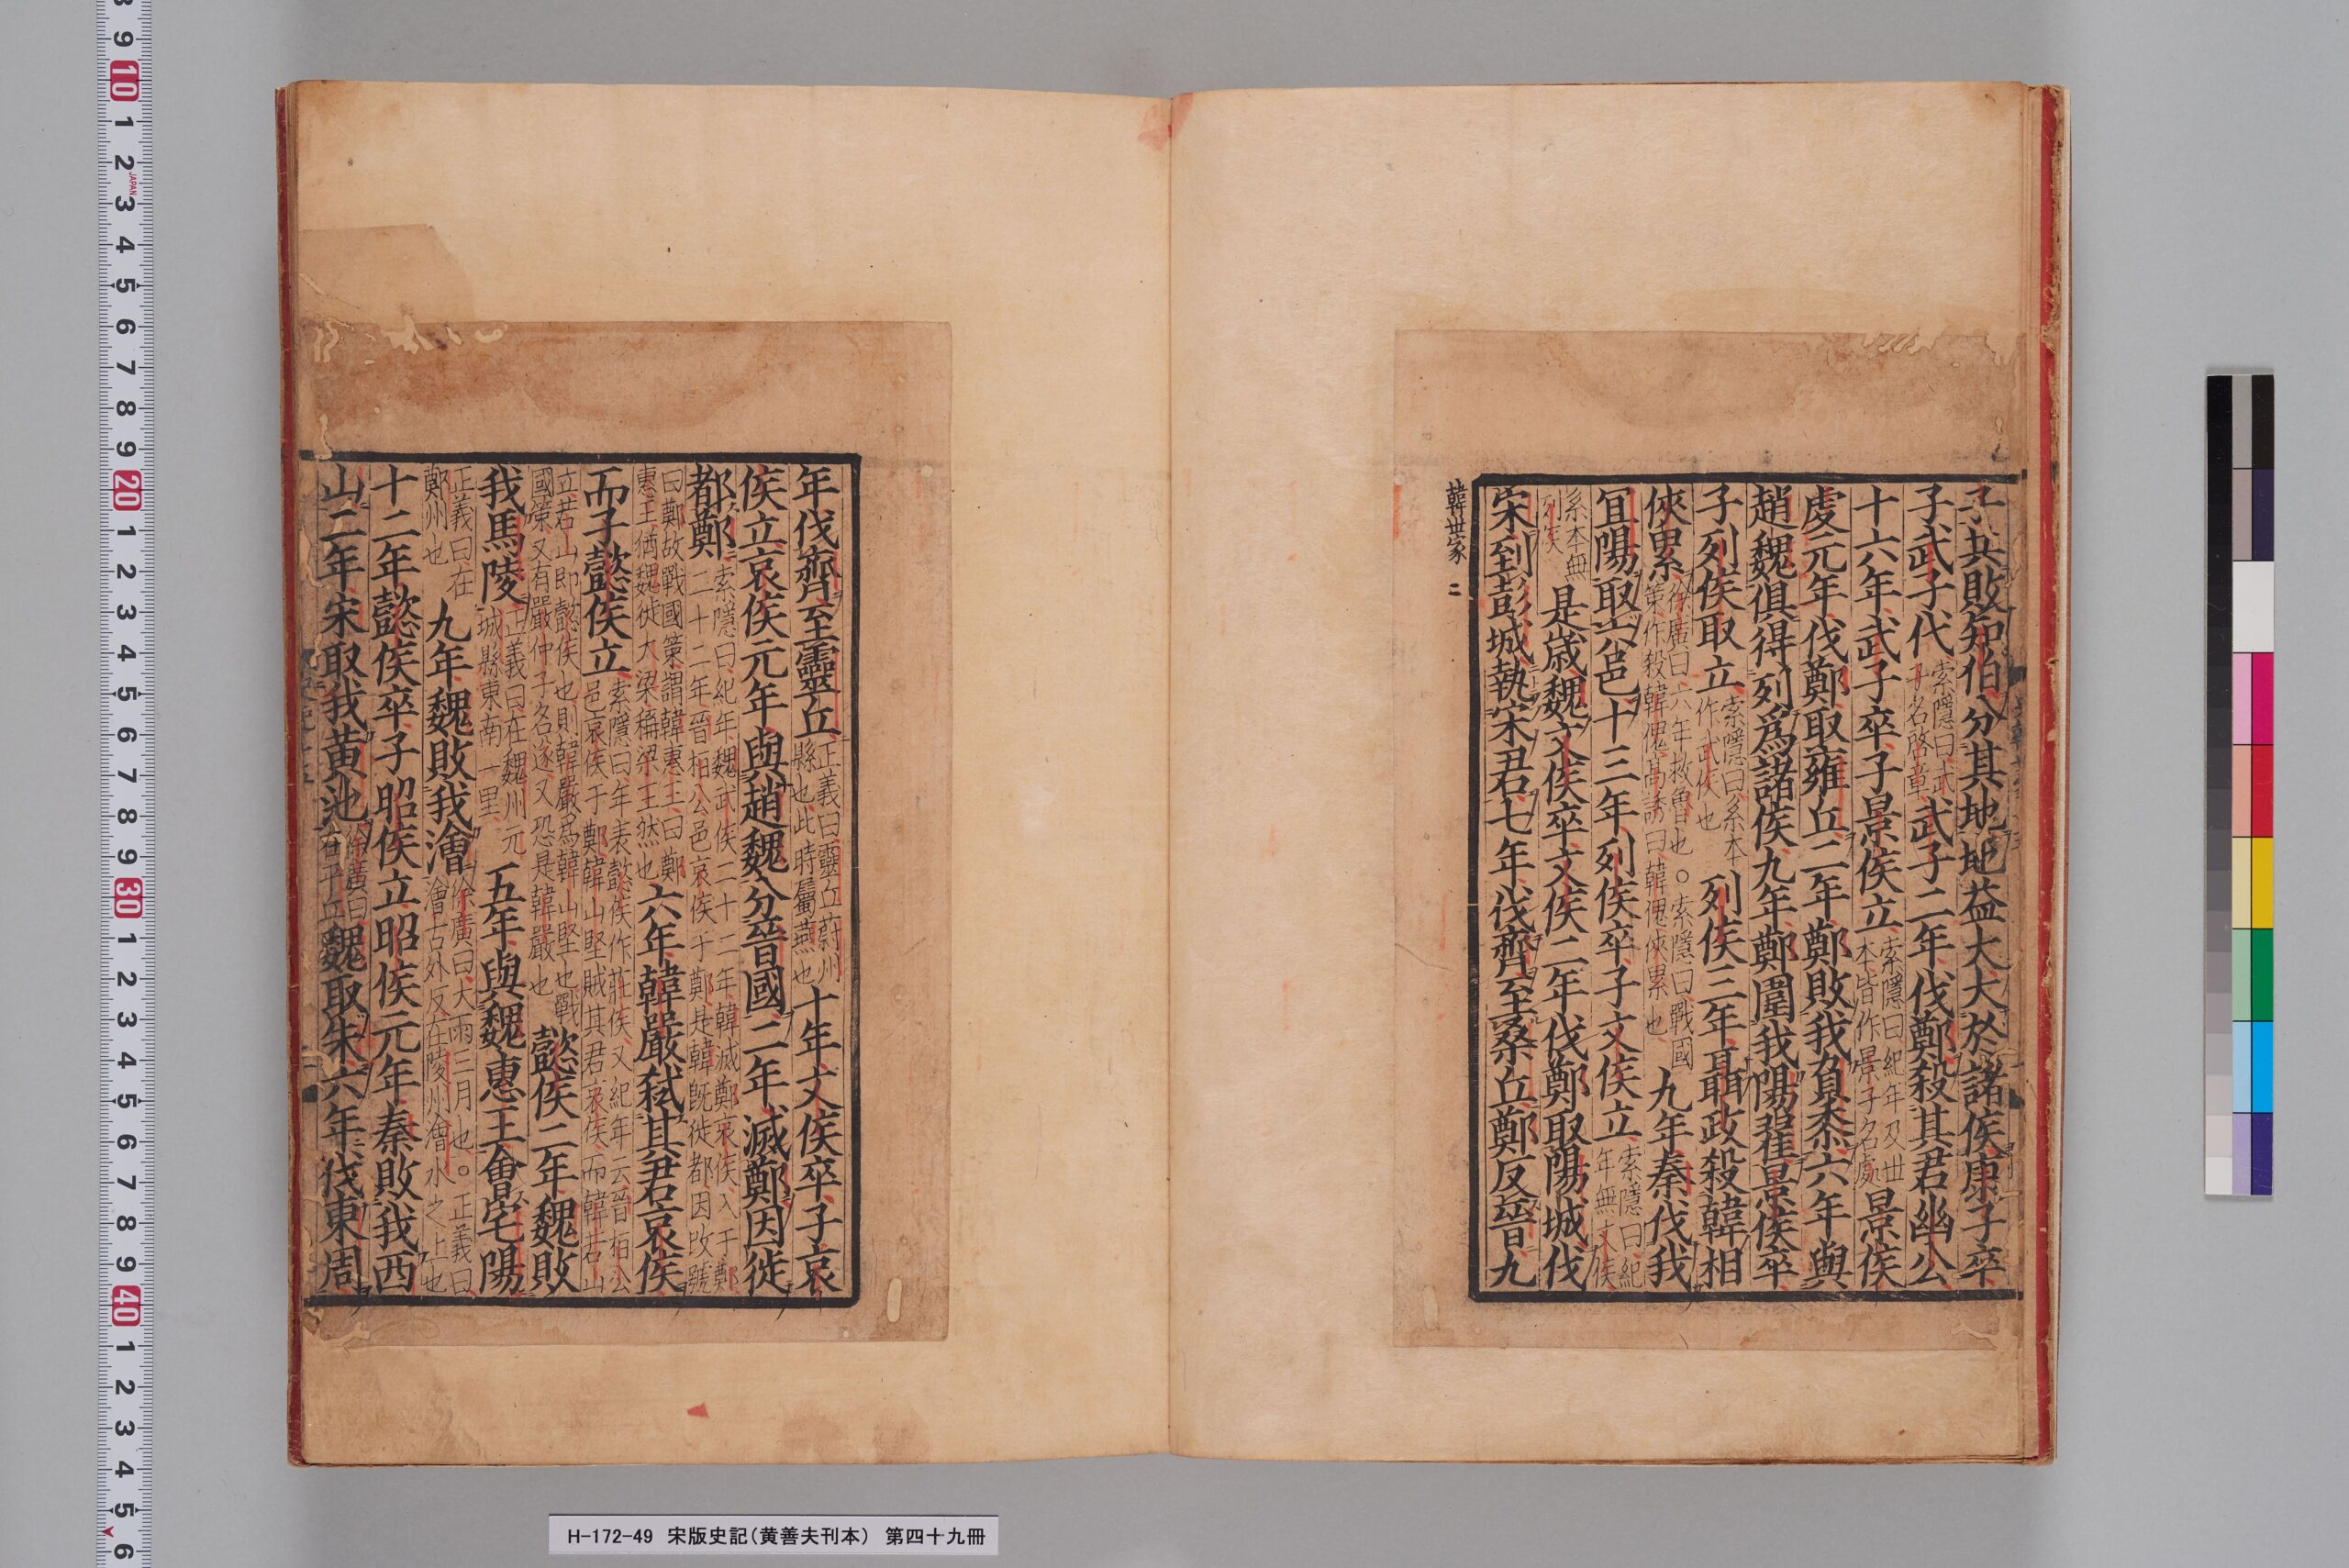 子共敗知伯分其地地益大大於諸侯康子卒
子武子代索隱曰武子名啓章武子二年伐鄭殺其君幽公
十六年武子卒子景侯立索隱曰紀年及世本皆作景子名處景侯
虔元年伐鄭取雍丘二年鄭敗我負黍六年與
趙魏俱得列爲諸侯九年鄭圍我陽翟景侯卒
子列侯取立索隱曰系本作武侯也列侯三年聶政殺韓相
俠累徐廣曰六年救魯也○索隱曰戰國策作殺韓傀高誘曰韓傀俠累也九年秦伐我
宜陽取六邑十三年列侯卒子文侯立索隱曰紀年無文侯
系本無列侯是歲魏文侯卒文侯二年伐鄭取陽城伐
宋到彭城執宋君七年伐齊至桑丘鄭反晉九
韓世家 二
年伐齊至靈丘正義曰靈丘蔚州縣也此時屬燕也十年文侯卒子哀
侯立哀侯元年與趙魏分晉國二年滅鄭因徙
都鄭索隱曰紀年魏武侯二十一年韓滅鄭哀侯入于鄭二十二年晉桓公邑哀侯于鄭是韓旣徙都因改號
曰鄭故戰國策謂韓惠王曰鄭惠王猶魏徙大梁稱梁王然也六年韓嚴弑其君哀侯
而子懿侯立索隱曰年表懿侯作莊侯又紀年云晉桓公邑哀侯于鄭韓山堅賊其君哀侯而韓若山
立若山即懿侯也則韓嚴爲韓山堅也戰國策又有嚴仲子名遂又恐是韓嚴也懿侯二年魏敗
我馬陵正義曰在魏州元城縣東南一里五年與魏惠王會宅陽
正義曰在鄭州也九年魏敗我澮徐廣曰大雨三月也○正義曰澮古外反在陵州澮水之上也
十二年懿侯卒子昭侯立昭侯元年秦敗我西
山二年宋取我黃池徐廣曰在平丘魏取朱六年伐東周
H-172-49 宋版史記(黄善夫刊本) 第四十九冊
JAPAN